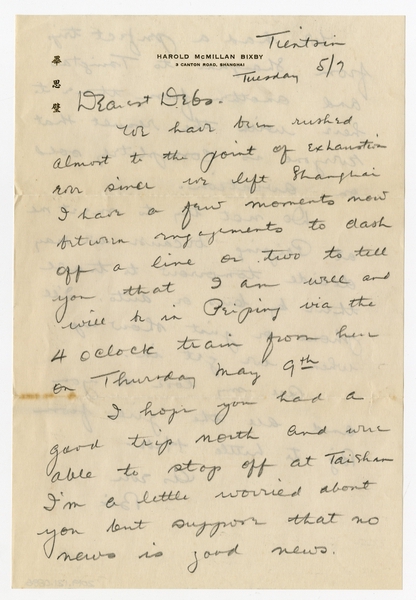 Tientsin
HAROLD McMILLAN BIXBY
3 CANTON ROAD, SHANGHAI
Tuesday 5/7
畢
思
璧
Dearest Debs.
We have been rushed
almost to the point of exhaustion
ever since we left Shanghai
I have a few moments now
between engagements to dash
off a line or two to tell
you that I am well and
will be in Peiping via the
4 oclock train from here
on Thursday May 9th
I hope you had a
good trip north and were
able to stop off at Taishan
I'm a little worried about
you but suppose that no
news is good news.